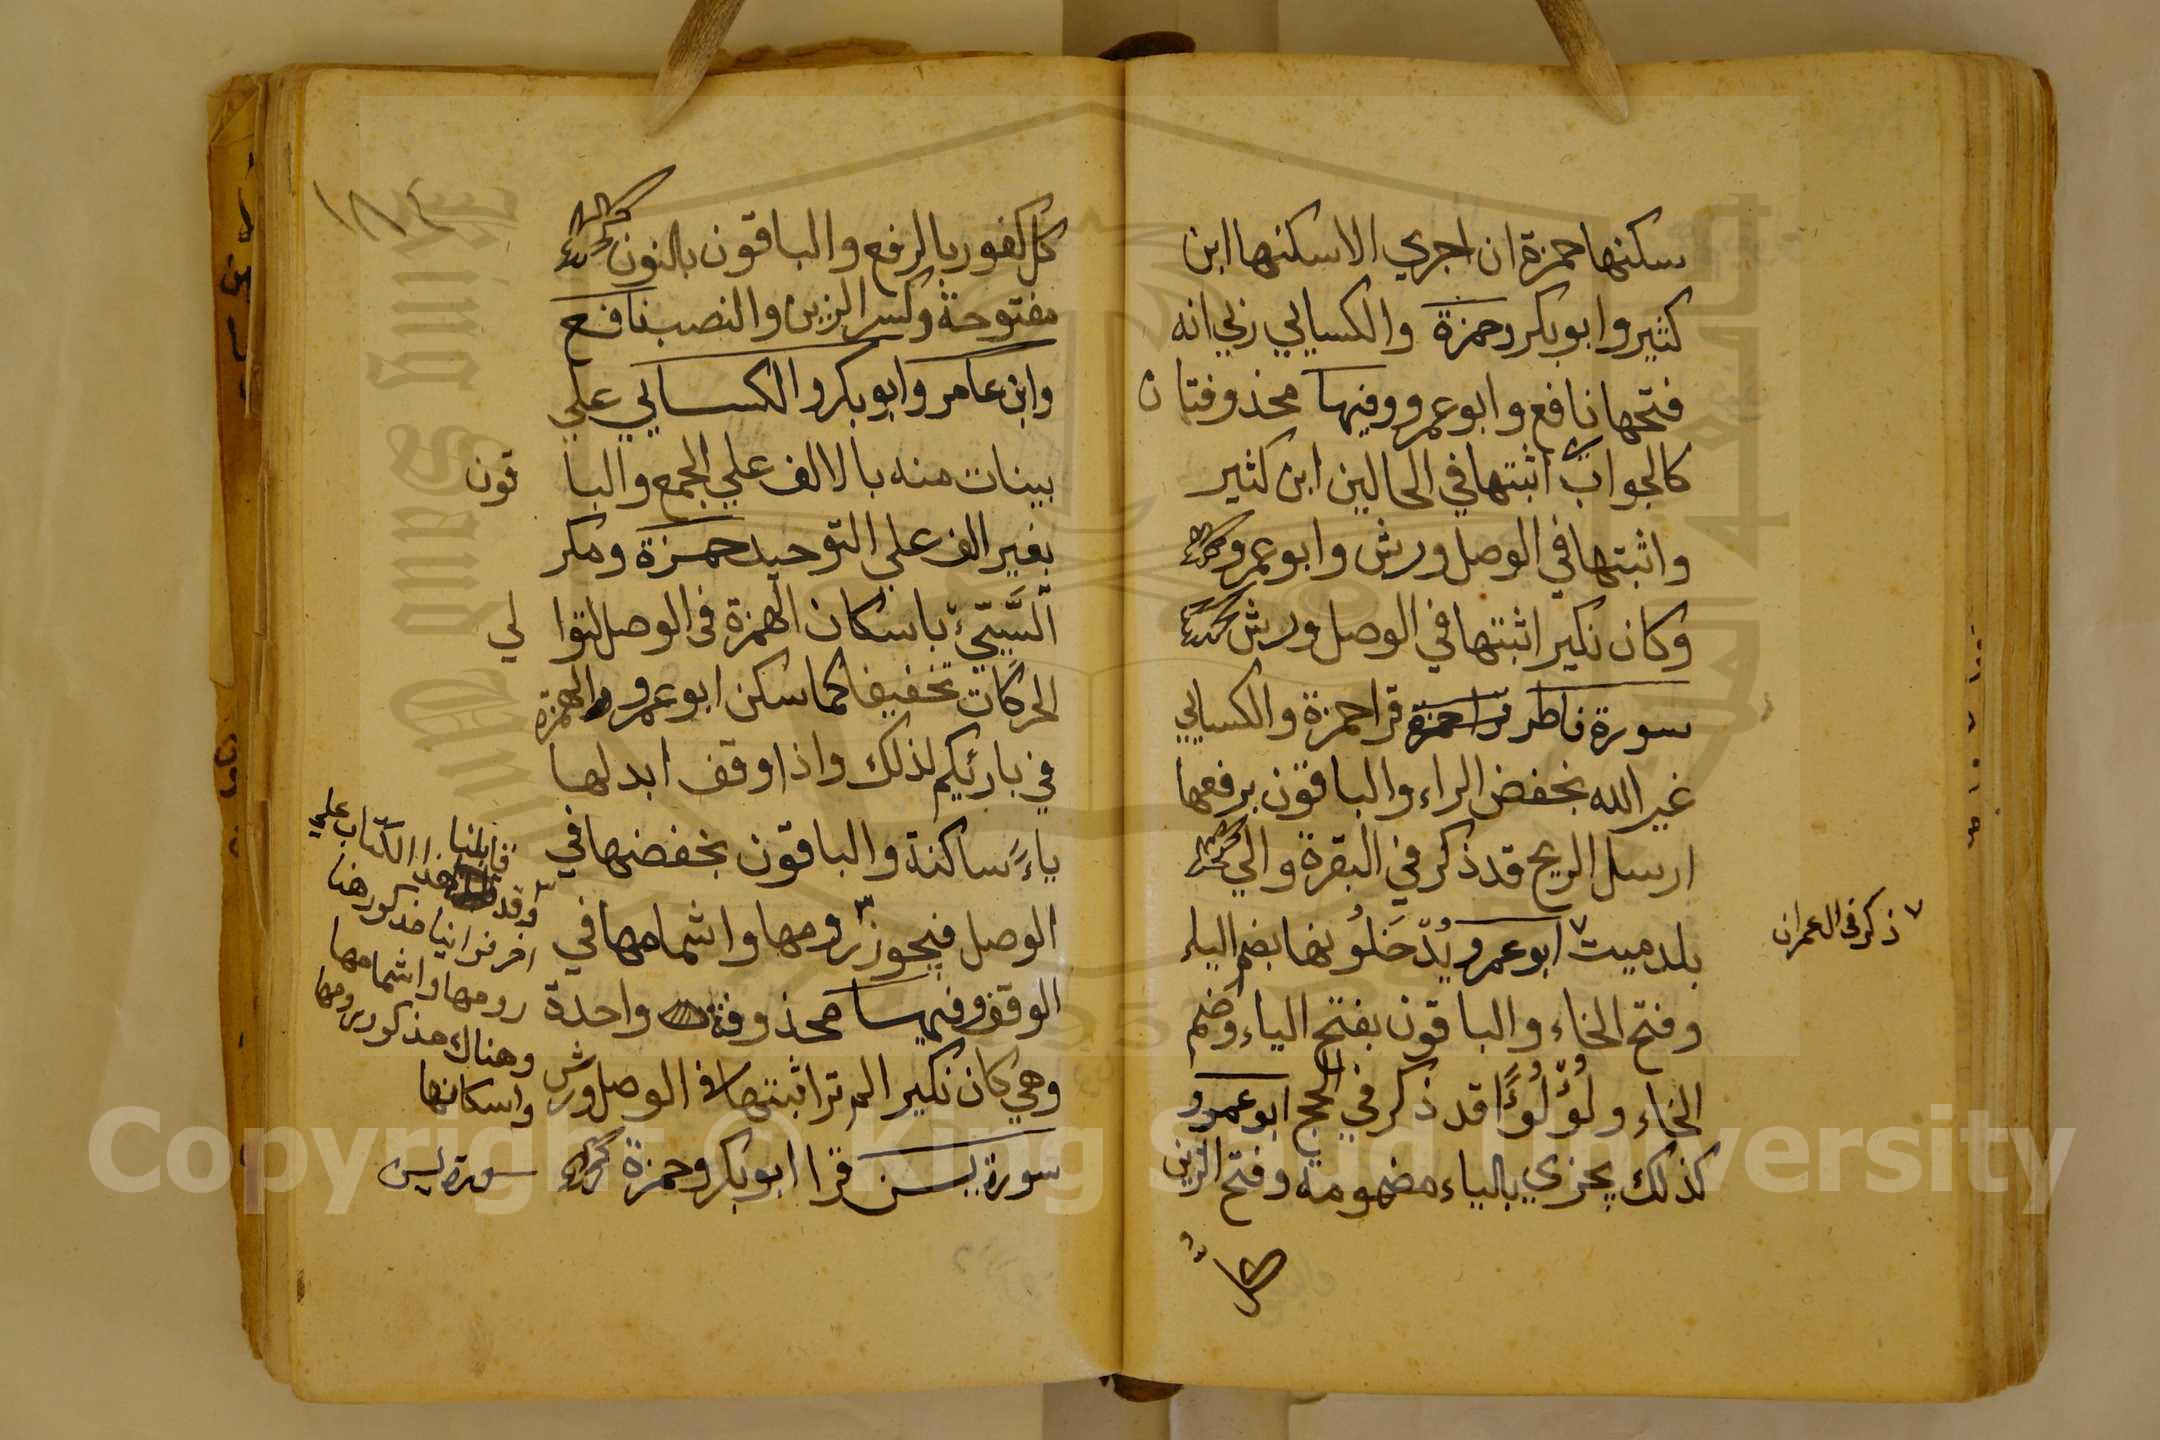 سكنها حمزة ان اجري الا سكنها ابن
كثير وابو بكر وحمزة والكسايي ربي انه
فتحها نافع وابو عمرو وفيها محذوفتان
كالجواب اثبتها في الحالين ابن كثير
واثبتها في الوصل ورش وابو عمرو
وكان نكير اثبتها في الوصل ورش
سورة فاطر قرا حمزة والكسايي
غير الله بخفض الراء والباقون برفعها
ارسل الريح قد ذكر في البقرة والي
بلد ميت ابو عمرو يُدْخَلُونها بضم الياء
وفتح الخاء والباقون بفتح الياء وضم
الخاء ولُؤْلُؤًا قد ذكر في الحج ابو عمرو
كذلك يجزي بالياء مضمومة وفتح الزين
كل
ذكر في ال عمران
١٨٤
كل كفور بالرفع والباقون بالنون
مفتوحة وكسر الزين والنصب نافع
وابن عامر وابو بكر والكسايي علي
بينات منه بالالف علي الجمع والباقون
بغير الف علي التوحيد حمزة ومكر
السَّيِّئْ باسكان الهمزة في الوصل لتوالي
الحركات تخفيفا كما سكن ابو عمرو والهمزة
في بارئكم لذلك واذا وقف ابدلها
ياءً ساكنة والباقون بخفضها في
الوصل فيجوز رومها واشمامها في
الوقف وفيها محذوفة واحدة
وهي كان نكير الم تر اثبتها في الوصل ورش
سورة يسن قرا ابو بكر وحمزة
قابلنا هذا الكتاب علي
مذكور هنا
رومها واشمامها
وهناك مذكور رومها
واسكانها
سورة يس
Copyright © King Saud University